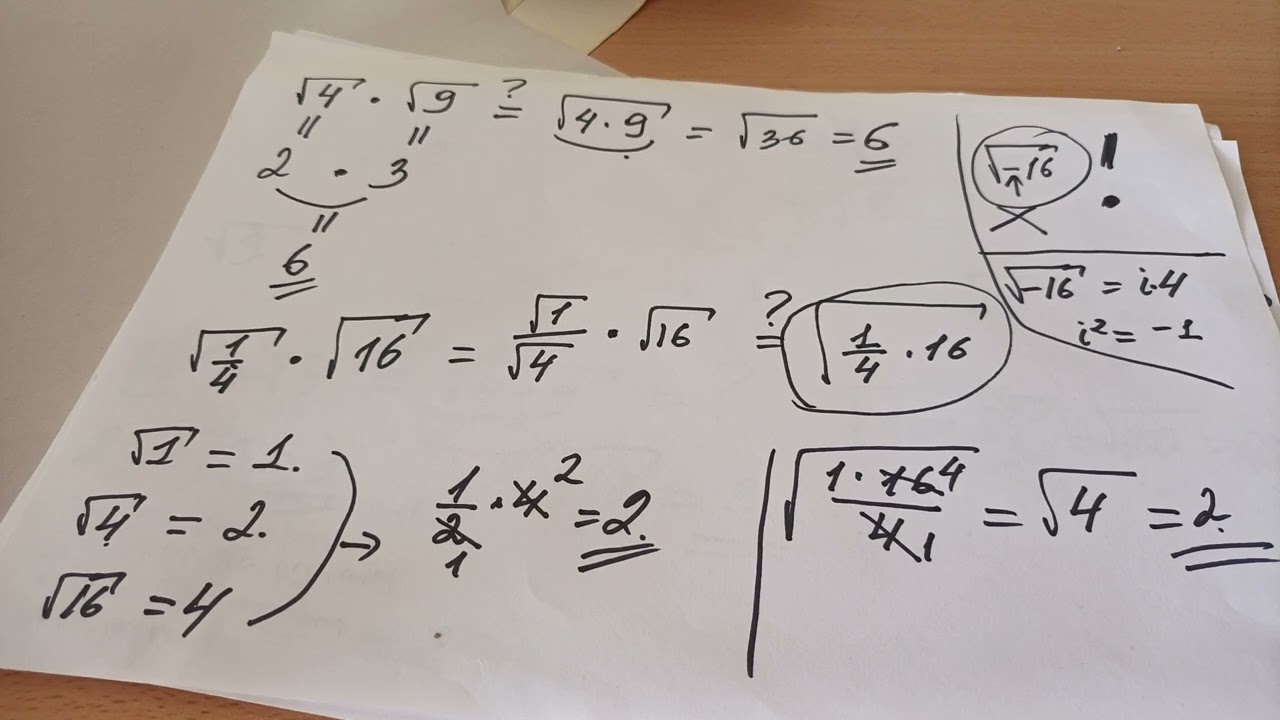 √4 · √9 ≟ √(4 · 9) = √36 = 6
=   =
2 · 3
=
6
√-16 !
↑
√-16 = i·4
i² = -1
√(1/4) · √16 = √1/√4 · √16 ≟ √(1/4 · 16)
√1 = 1.
√4 = 2.
√16 = 4
→ 1/2 · 4 2 = 2.
1
√(1 · 16 4 / 4 1) = √4 = 2.